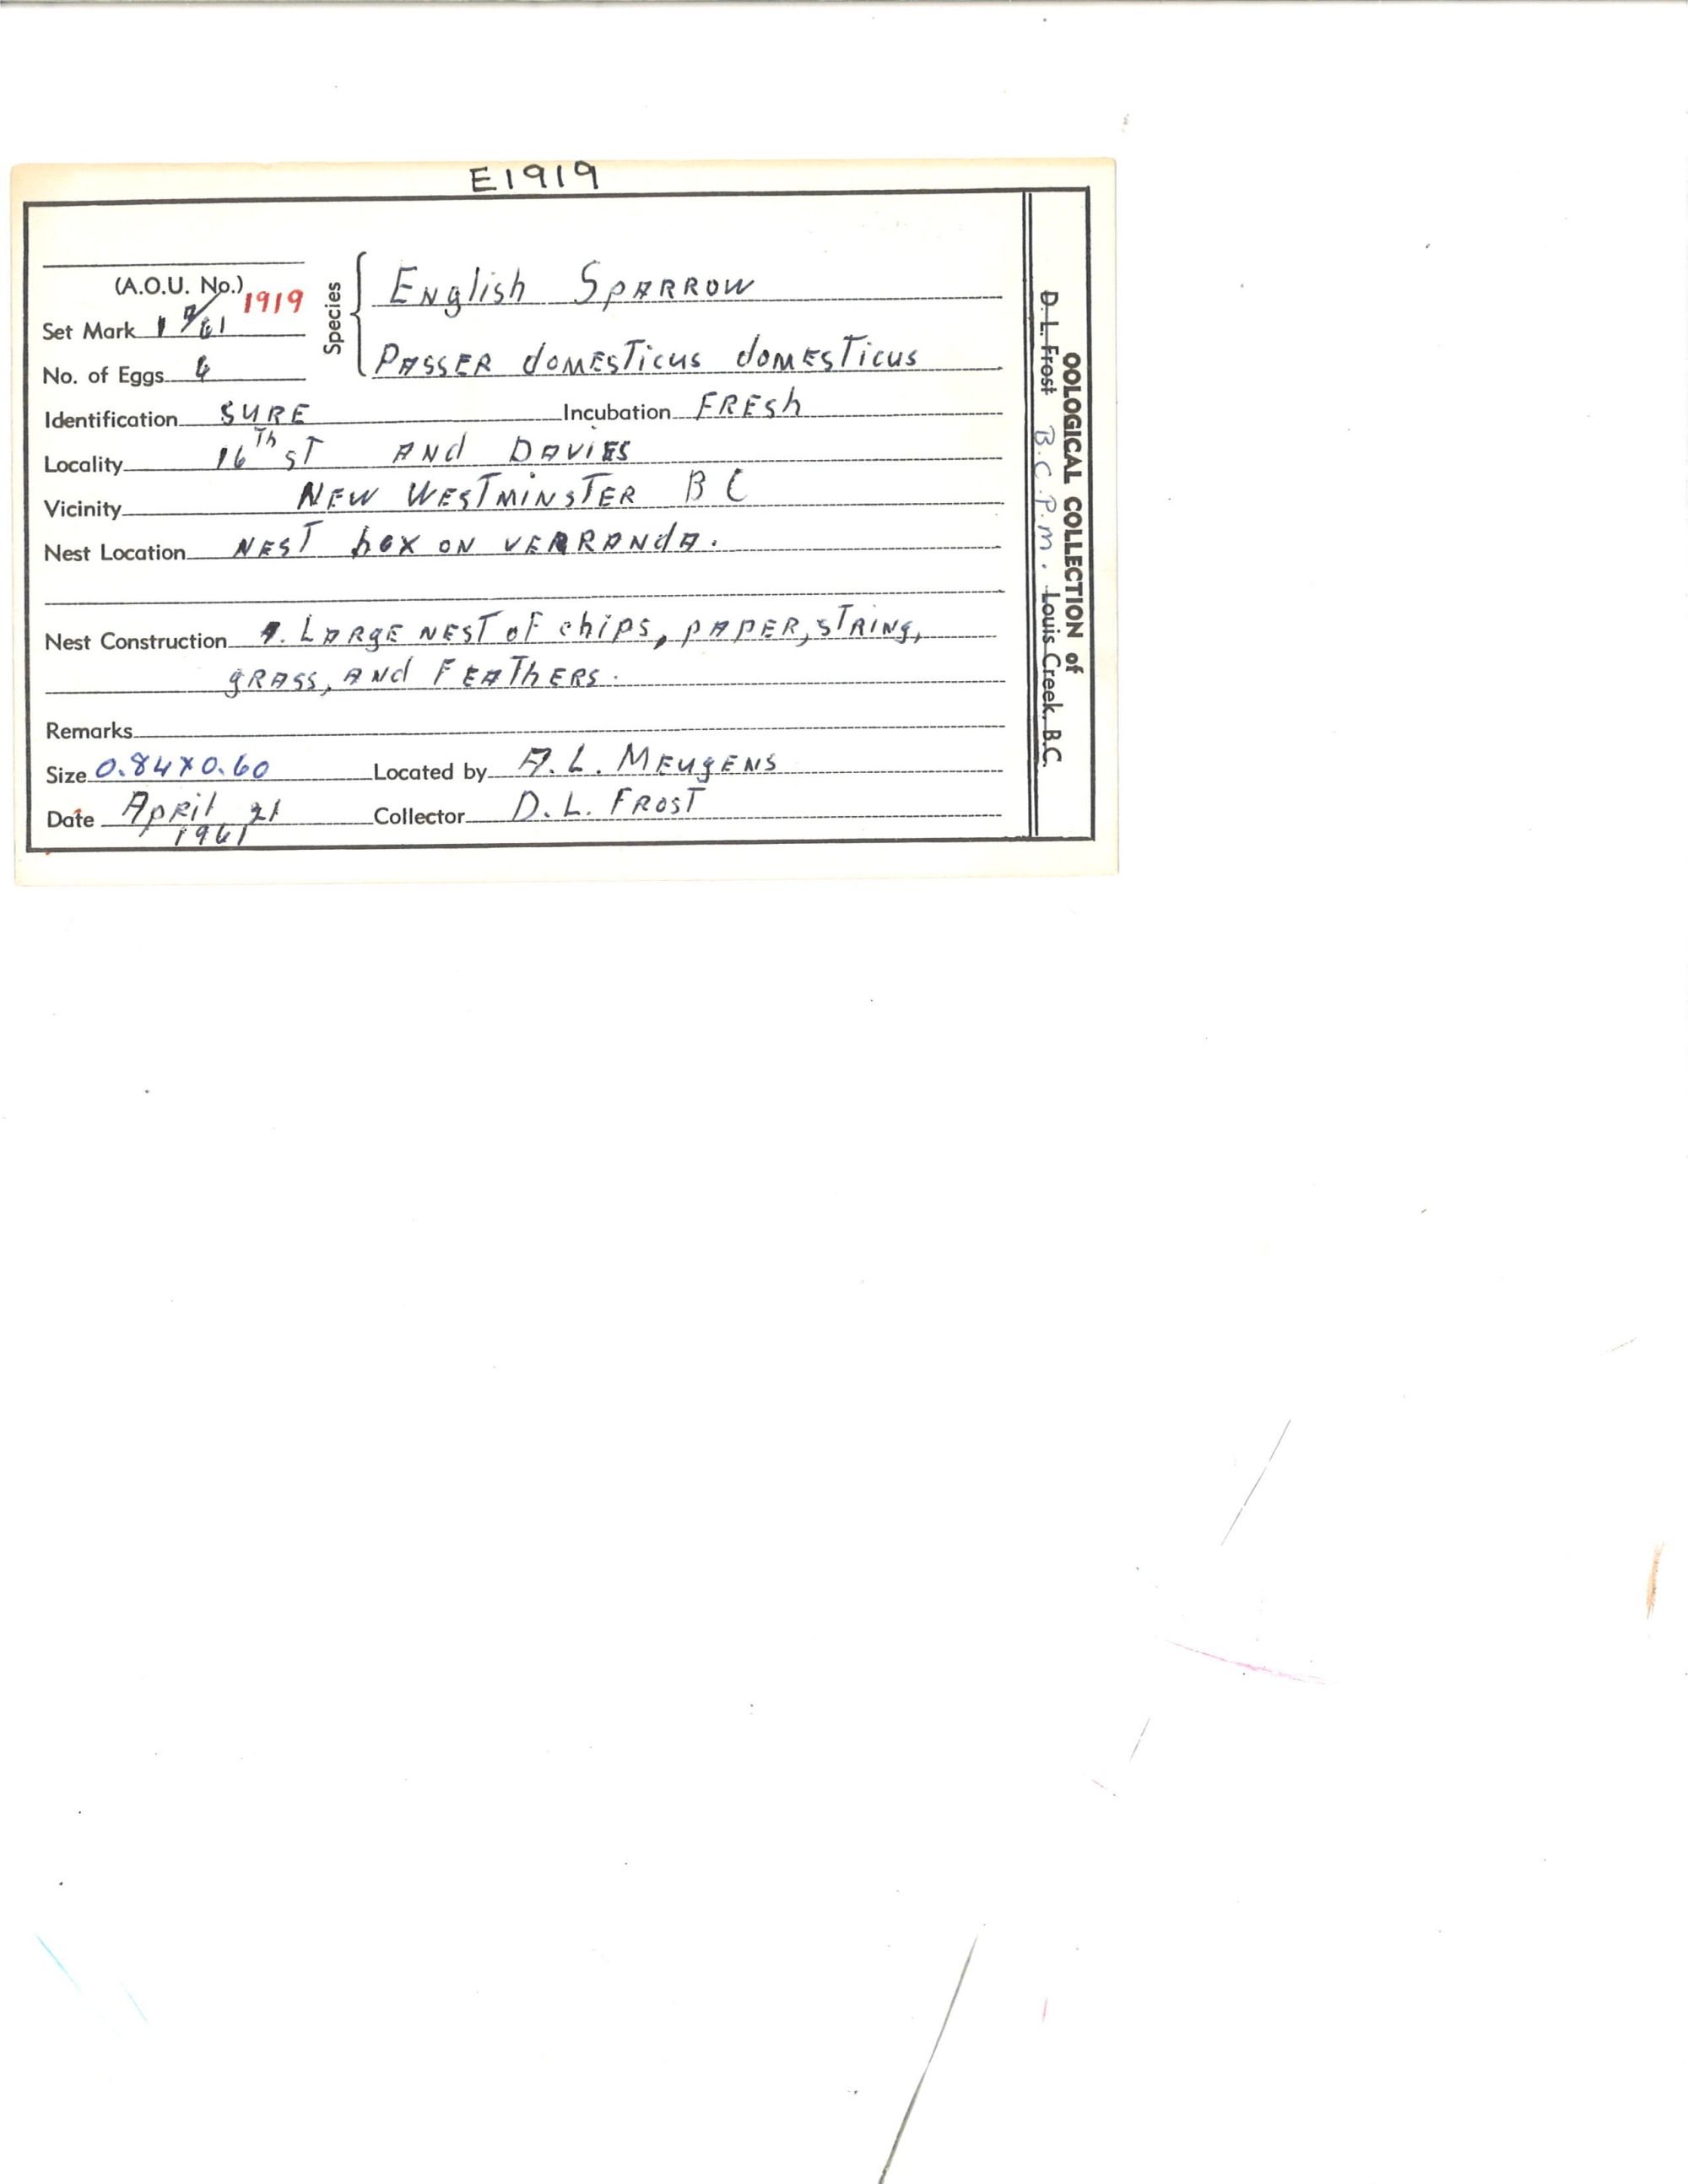 E1919
(A.O.U. No.) 1919
Set Mark
No. of Eggs
Species
English Sparrow
Passer domesticus domesticus
Identification SURE Incubation FRESh
Locality 16Th ST AND DAVIES
Vicinity NEW WESTMINSTER B C
Nest Location NEST box ON VERRANdA.
Nest Construction A. LARgE NEST of chips, pAPER, sTRINg,
gRASS, ANd FEAThERS.
Remarks
Size 0.84x0.60 Located by A. L. MEUgENS
Date ApRil 21 Collector D. L. FROST
1961
OOLOGICAL COLLECTION of
D. L. Frost B.C.P.M. Louis Creek, B.C.